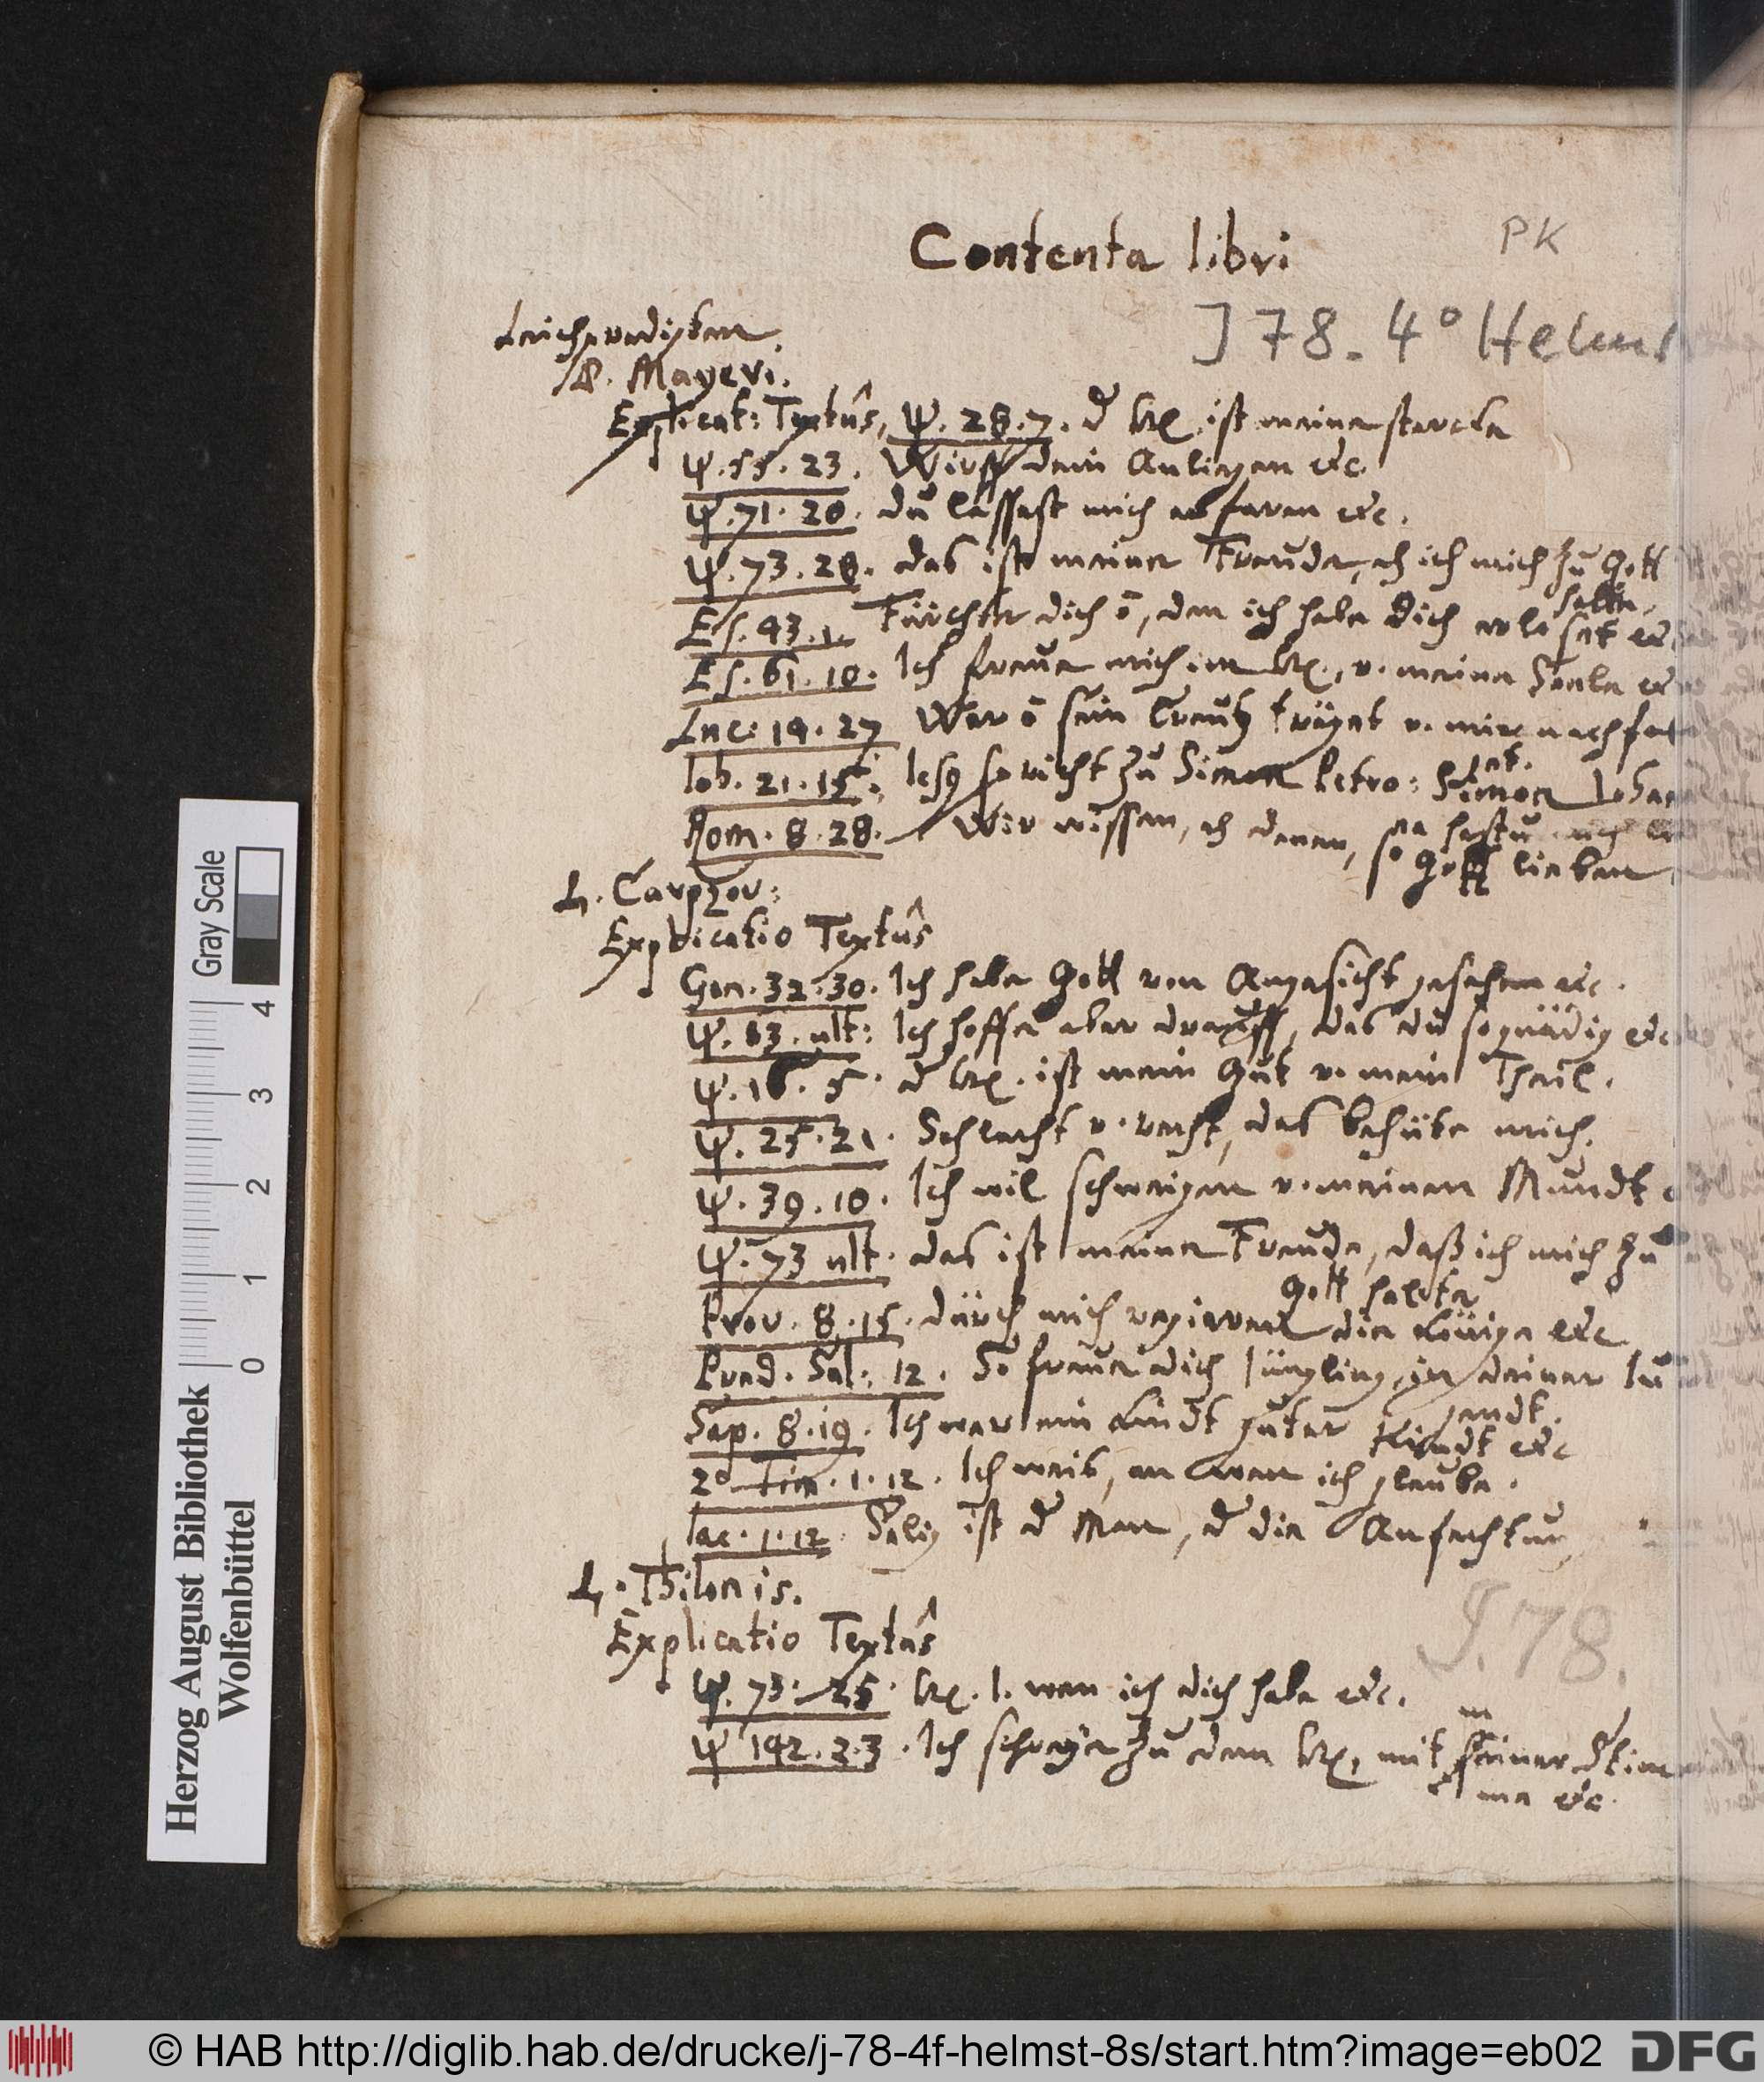 Contenta libri
PK
J 78. 4° Helmst
Leichpredigten
D. Mayeri.
Explicat: Textûs, Ψ. 28. 7. d HErr ist meine stercke
Ψ. 55. 23. Wirff dein Anligen etc.
Ψ. 71. 20. du lässest mich erfaren etc.
Ψ. 73. 28. das ist meine Freude, dz ich mich zu Gott
halte.
Es. 43. 1. Fürchte dich ō, den ich habe dich erlöset etc
Es. 61. 10. Ich freue mich im HErr., v. meine Seele etc
Luc: 14. 27 Wer ō sein Creutz träget v. mir nachfol
get.
Joh. 21. 15. Jesus spricht zu Simon Petro: Simon Johan
na hastu mich
Rom. 8. 28. Wir wissen, dz denen, so Gott lieben
L. Carpzov:
Explicatio Textûs
Gen. 32. 30. Ich habe Gott von Angesicht gesehen etc.
Ψ. 13. ult: Ich hoffe aber drauff, das du so gnädig etc
Ψ. 16. 5. d HErr. ist mein Gut v. mein Theil.
Ψ. 25. 21. Schlecht v. recht, das behüte mich.
Ψ. 39. 10. Ich wil schweigen v. meinen Mundt
Ψ. 73 ult. das ist meine Freude, daß ich mich zu
Gott halte
Prov. 8. 15. durch mich regieren die Könige etc
Pred. Sal: 12. So freue dich Jüngling, in deiner Ju
gendt.
Sap. 8. 19. Ich war ein Kindt guter Kindt etc
2 Tim. 1. 12. Ich weis, an wen ich glaube.
Jac. 1. 12. Selig ist d Man, d die Anfechtung
L. Thilonis.
Explicatio Textûs
J. 78.
Ψ. 73. 25. HErr. I. wen ich dich habe etc.
Ψ 142. 2. 3. Ich schreye zu dem HErr, mit seiner Stim
m
me etc.
Gray Scale
0 1 2 3 4
Herzog August Bibliothek
Wolfenbüttel
© HAB http://diglib.hab.de/drucke/j-78-4f-helmst-8s/start.htm?image=eb02
DFG